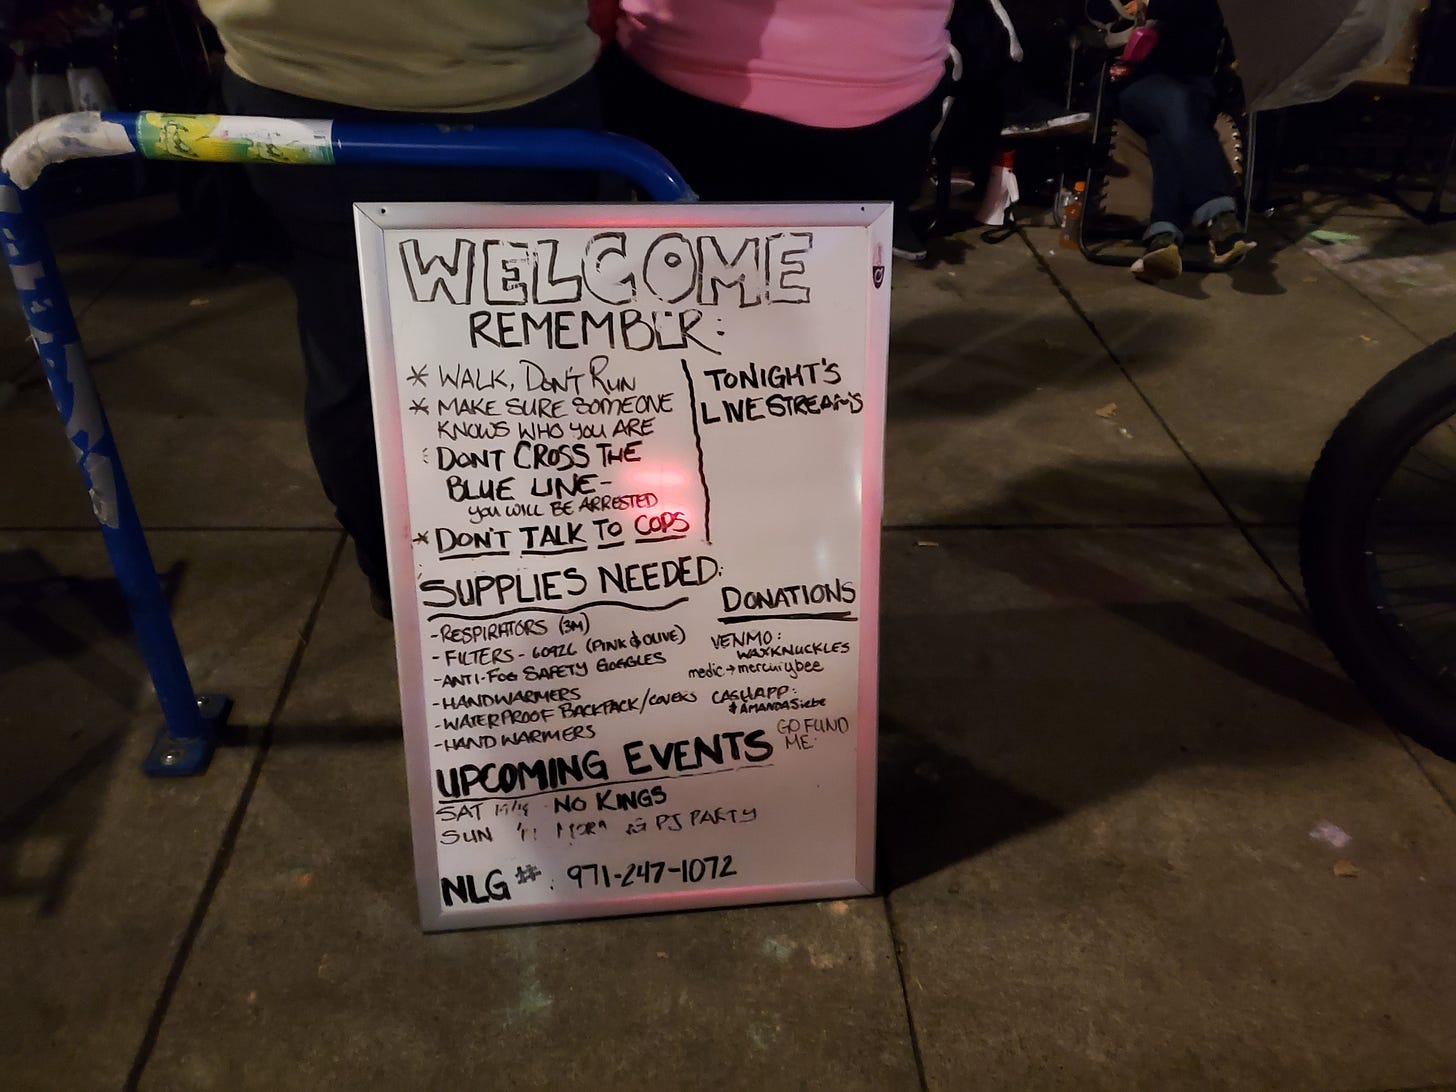 WELCOME
REMEMBER:
* WALK, DON'T RUN
* MAKE SURE SOMEONE
KNOWS WHO YOU ARE
DONT CROSS THE
BLUE LINE-
YOU WILL BE ARRESTED
* DON'T TALK TO COPS
TONIGHT'S
LIVESTREAMS
SUPPLIES NEEDED:
-RESPIRATORS (3M)
-FILTERS- 60926 (PINK & OLIVE)
-ANTI-FOG SAFETY GOGGLES
-HANDWARMERS
-WATERPROOF BACKPACK/COVERS
-HAND WARMERS
DONATIONS
VENMO:
WAXKNUCKLES
medic → mercurybee
CASHAPP:
$AMANDASiebe
GO FUND
ME:
UPCOMING EVENTS
SAT NO KINGS
SUN PJ PARTY
NLG #: 971-247-1072